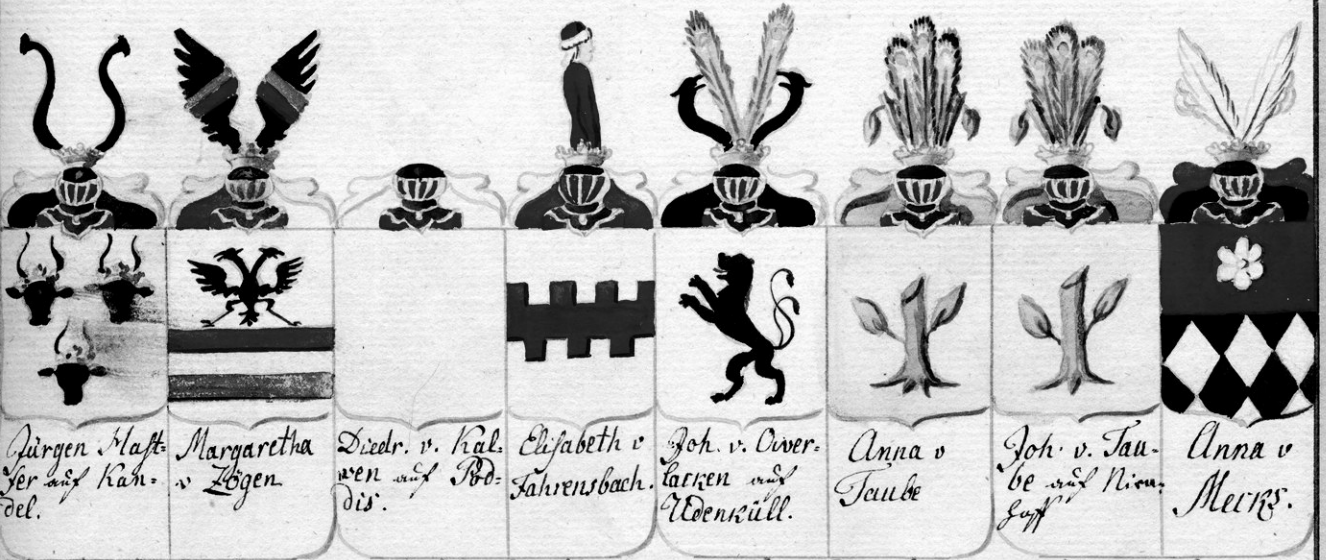 Jürgen Hast-
fer auf Kan-
del.
Margaretha
v Zögen
Diedr. v. Kal-
wen auf Pöd-
dis.
Elisabeth v
Fahrensbach.
Joh. v. Over-
lacken auf
Udenküll.
Anna v
Taube
Joh. v. Tau-
be auf Nien-
hoff
Anna v
Mecks.